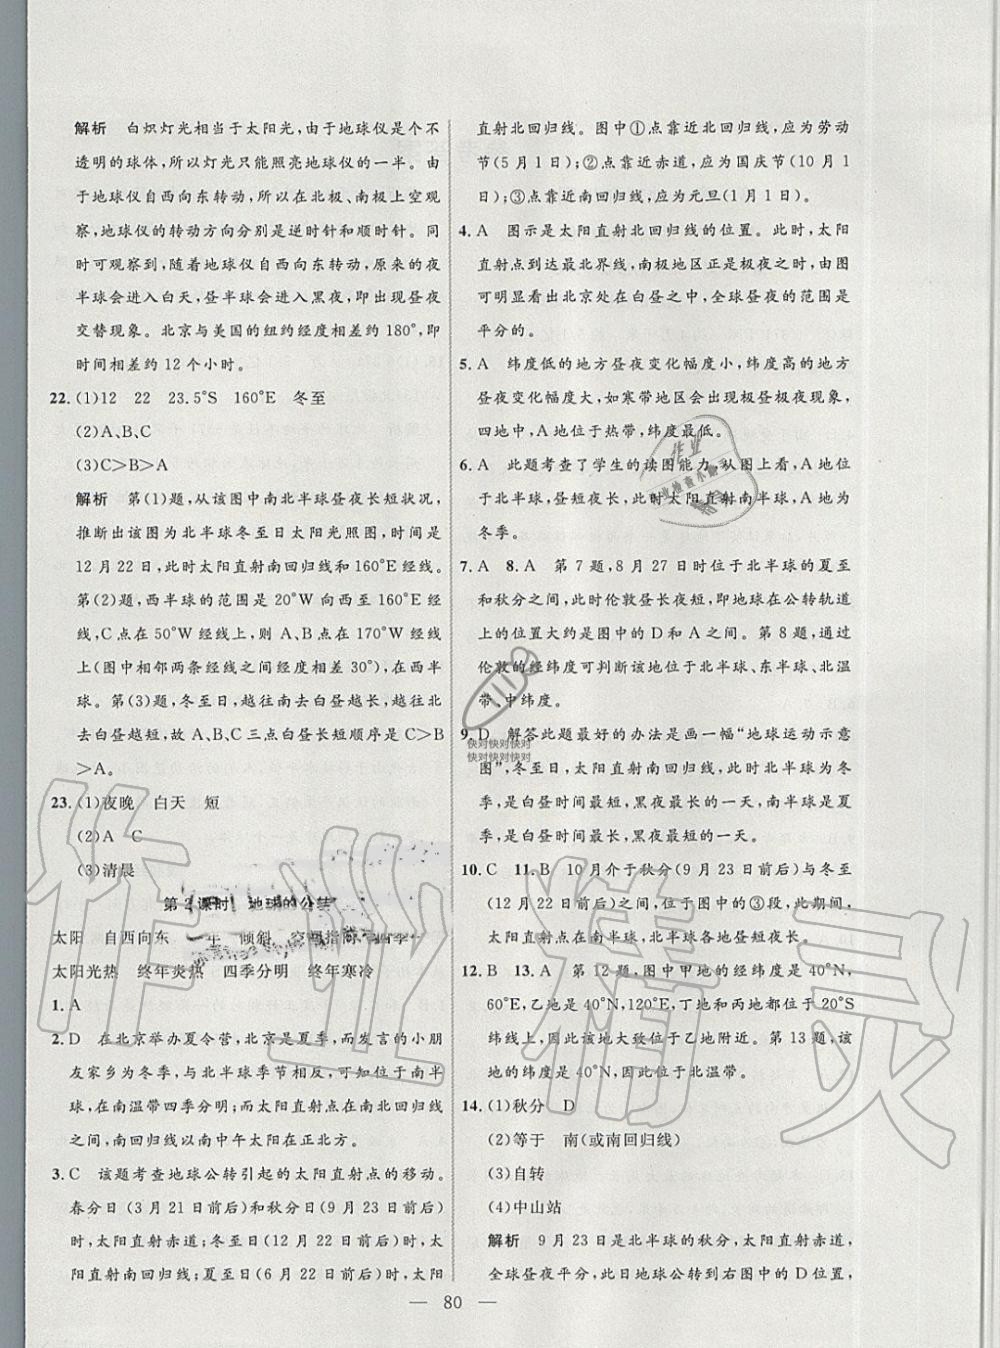 解析　白炽灯光相当于太阳光,由于地球仪是个不
透明的球体,所以灯光只能照亮地球仪的一半。由
于地球仪自西向东转动,所以在北极、南极上空观
察,地球仪的转动方向分别是逆时针和顺时针。同
时可观察到,随着地球仪自西向东转动,原来的夜
半球会进入白天,昼半球会进入黑夜,即出现昼夜
交替现象。北京与美国的纽约经度相差约180°,即
时间相差约12个小时。
22. (1)12　22　23.5°S　160°E　冬至
(2)A、B、C
(3)C>B>A
解析　第(1)题,从该图中南北半球昼夜长短状况,
推断出该图为北半球冬至日太阳光照图,时间是
12月22日,此时太阳直射南回归线和160°E经线。
第(2)题,西半球的范围是20°W向西至160°E经
线,C点在50°W经线上,则A、B点在170°W经线
上(图中相邻两条经线之间经度相差30°),在西半
球。第(3)题,冬至日,越往南去白昼越长,越往北
去白昼越短,故A、B、C三点白昼长短顺序是C>B
>A。
23. (1)夜晚　白天　短
(2)A　C
(3)清晨
第2课时　地球的公转
太阳　自西向东　一年　倾斜　空间指向　四季
太阳光热　终年炎热　四季分明　终年寒冷
1. A
2. D　在北京举办夏令营,北京是夏季,而发言的小朋
友家乡为冬季,与北半球季节相反,可知位于南半
球,在南温带四季分明;太阳直射点在南、北回归线
之间,一年中南回归线以南中午太阳在正北方。
3. C　该题考查地球公转引起的太阳直射点的移动。
春分日(3月21日前后)和秋分日(9月23日前后)
时,太阳直射赤道;冬至日(12月22日前后)时,太
阳直射南回归线;夏至日(6月22日前后)时,太阳
直射北回归线。图中①点靠近北回归线,应为劳动
节(5月1日);②点靠近赤道,应为国庆节(10月1
日);③点靠近南回归线,应为元旦(1月1日)。
4. A　图示是太阳直射北回归线的位置。此时,太阳
直射点到达最北界线,南极地区正是极夜之时,由图
可明显看出北京处在白昼之中,全球昼夜的范围是
平分的。
5. A　纬度低的地方昼夜变化幅度小,纬度高的地方
昼夜变化幅度大,如寒带地区会出现极昼极夜现象,
四地中,A地位于热带,纬度最低。
6. A　此题考查了学生的读图能力,从图上看,A地位
于北半球,昼短夜长,此时太阳直射南半球,A地为
冬季。
7. A　8. A　第7题,8月27日时位于北半球的夏至
和秋分之间,此时伦敦昼长夜短,即地球在公转轨道
上的位置大约是图中的D和A之间。第8题,通过
伦敦的经纬度可判断该地位于北半球、东半球、北温
带、中纬度。
9. D　解答此题最好的办法是画一幅“地球运动示意
图”,冬至日,太阳直射南回归线,此时北半球为冬
季,是白昼时间最短,黑夜最长的一天,南半球为夏
季,是白昼时间最长,黑夜最短的一天。
10. C　11. B　10月介于秋分(9月23日前后)与冬至
(12月22日前后)之间,位于图中的③段,此期间,
太阳直射点在南半球,北半球各地昼短夜长。
12. B　13. A　第12题,图中甲地的经纬度是40°N,
60°E,乙地是40°N,120°E,丁地和丙地都位于20°S
纬线上,因此该地大致位于乙地附近。第13题,该
地的纬度是40°N,因此位于北温带。
14. (1)秋分　D
(2)等于　南(或南回归线)
(3)自转
(4)中山站
解析　9月23日是北半球的秋分,太阳直射赤道,
全球昼夜平分,此日地球公转到右图中的D位置,
— 80 —
作业精灵
快对快对快对
快对快对快对